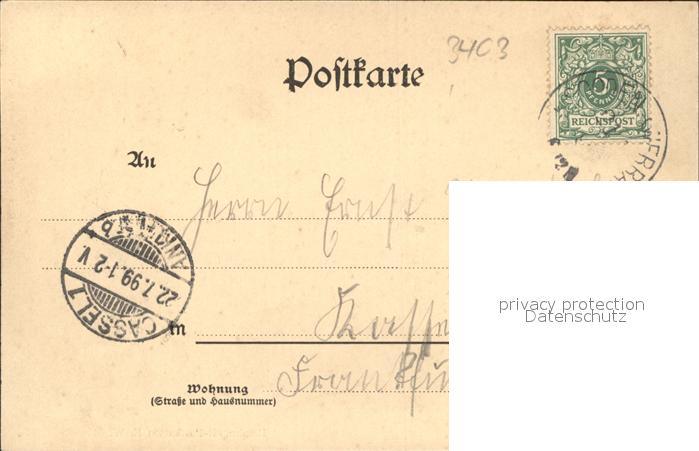 3403
Postkarte
5
PFENNIG
REICHSPOST
An
Herrn Ernst
CASSEL 1
22.7.99.1-2 V
in
Kasse
Wohnung
(Straße und Hausnummer)
Frankfu
privacy protection
Datenschutz